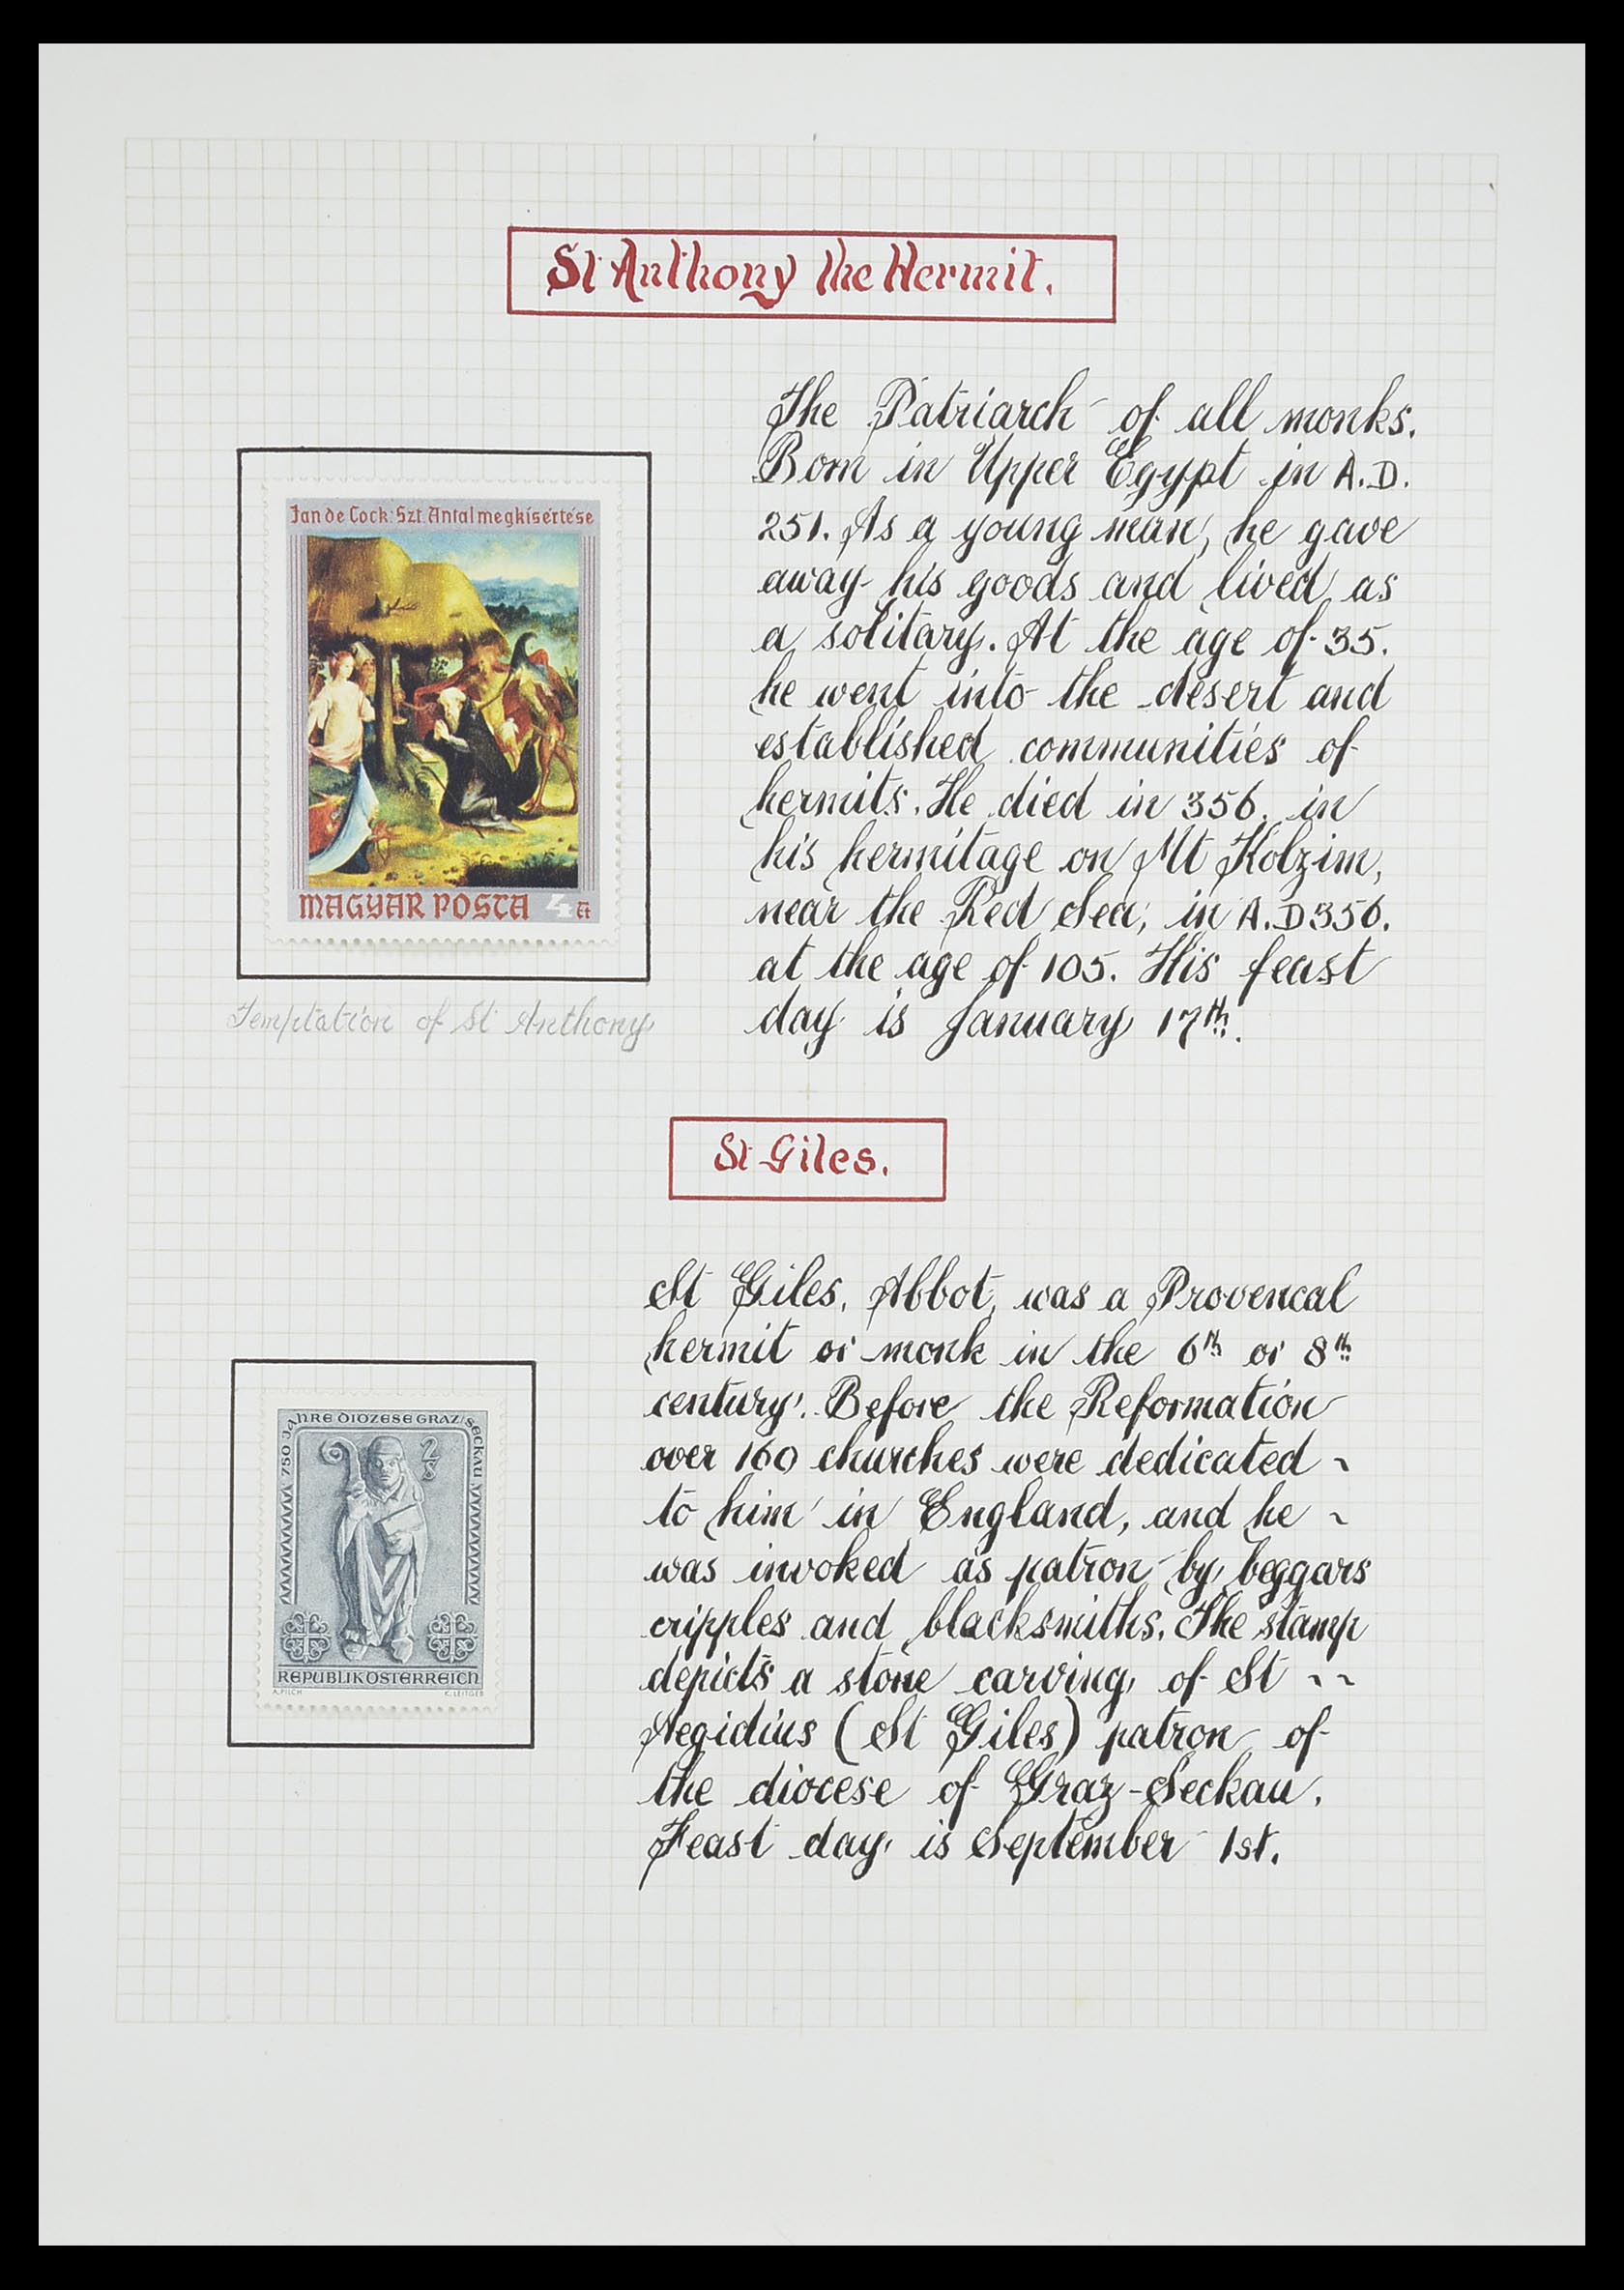 St Anthony the Hermit.
The Patriarch of all monks.
Born in Upper Egypt in A.D.
251. As a young man, he gave
away his goods and lived as
a solitary. At the age of 35.
he went into the desert and
established communities of
hermits. He died in 356. in
his hermitage on Mt Kolzim,
near the Red Sea, in A.D 356.
at the age of 105. His feast
day is January 17th.
Jan de Cock: Szt. Antal megkísértése
MAGYAR POSTA 4 Ft
Temptation of St Anthony
St Giles.
St Giles, Abbot, was a Provencal
hermit or monk in the 6th or 8th
century. Before the Reformation
over 160 churches were dedicated ~
to him in England, and he ~
was invoked as patron by beggars
cripples and blacksmiths. The stamp
depicts a stone carving of St ~~
Aegidius (St Giles) patron of
the diocese of Graz-Seckau.
Feast day is September 1st.
750 JAHRE DIÖZESE GRAZ/SECKAU
2 S
REPUBLIK ÖSTERREICH
A. PILCH K. LEITGEB